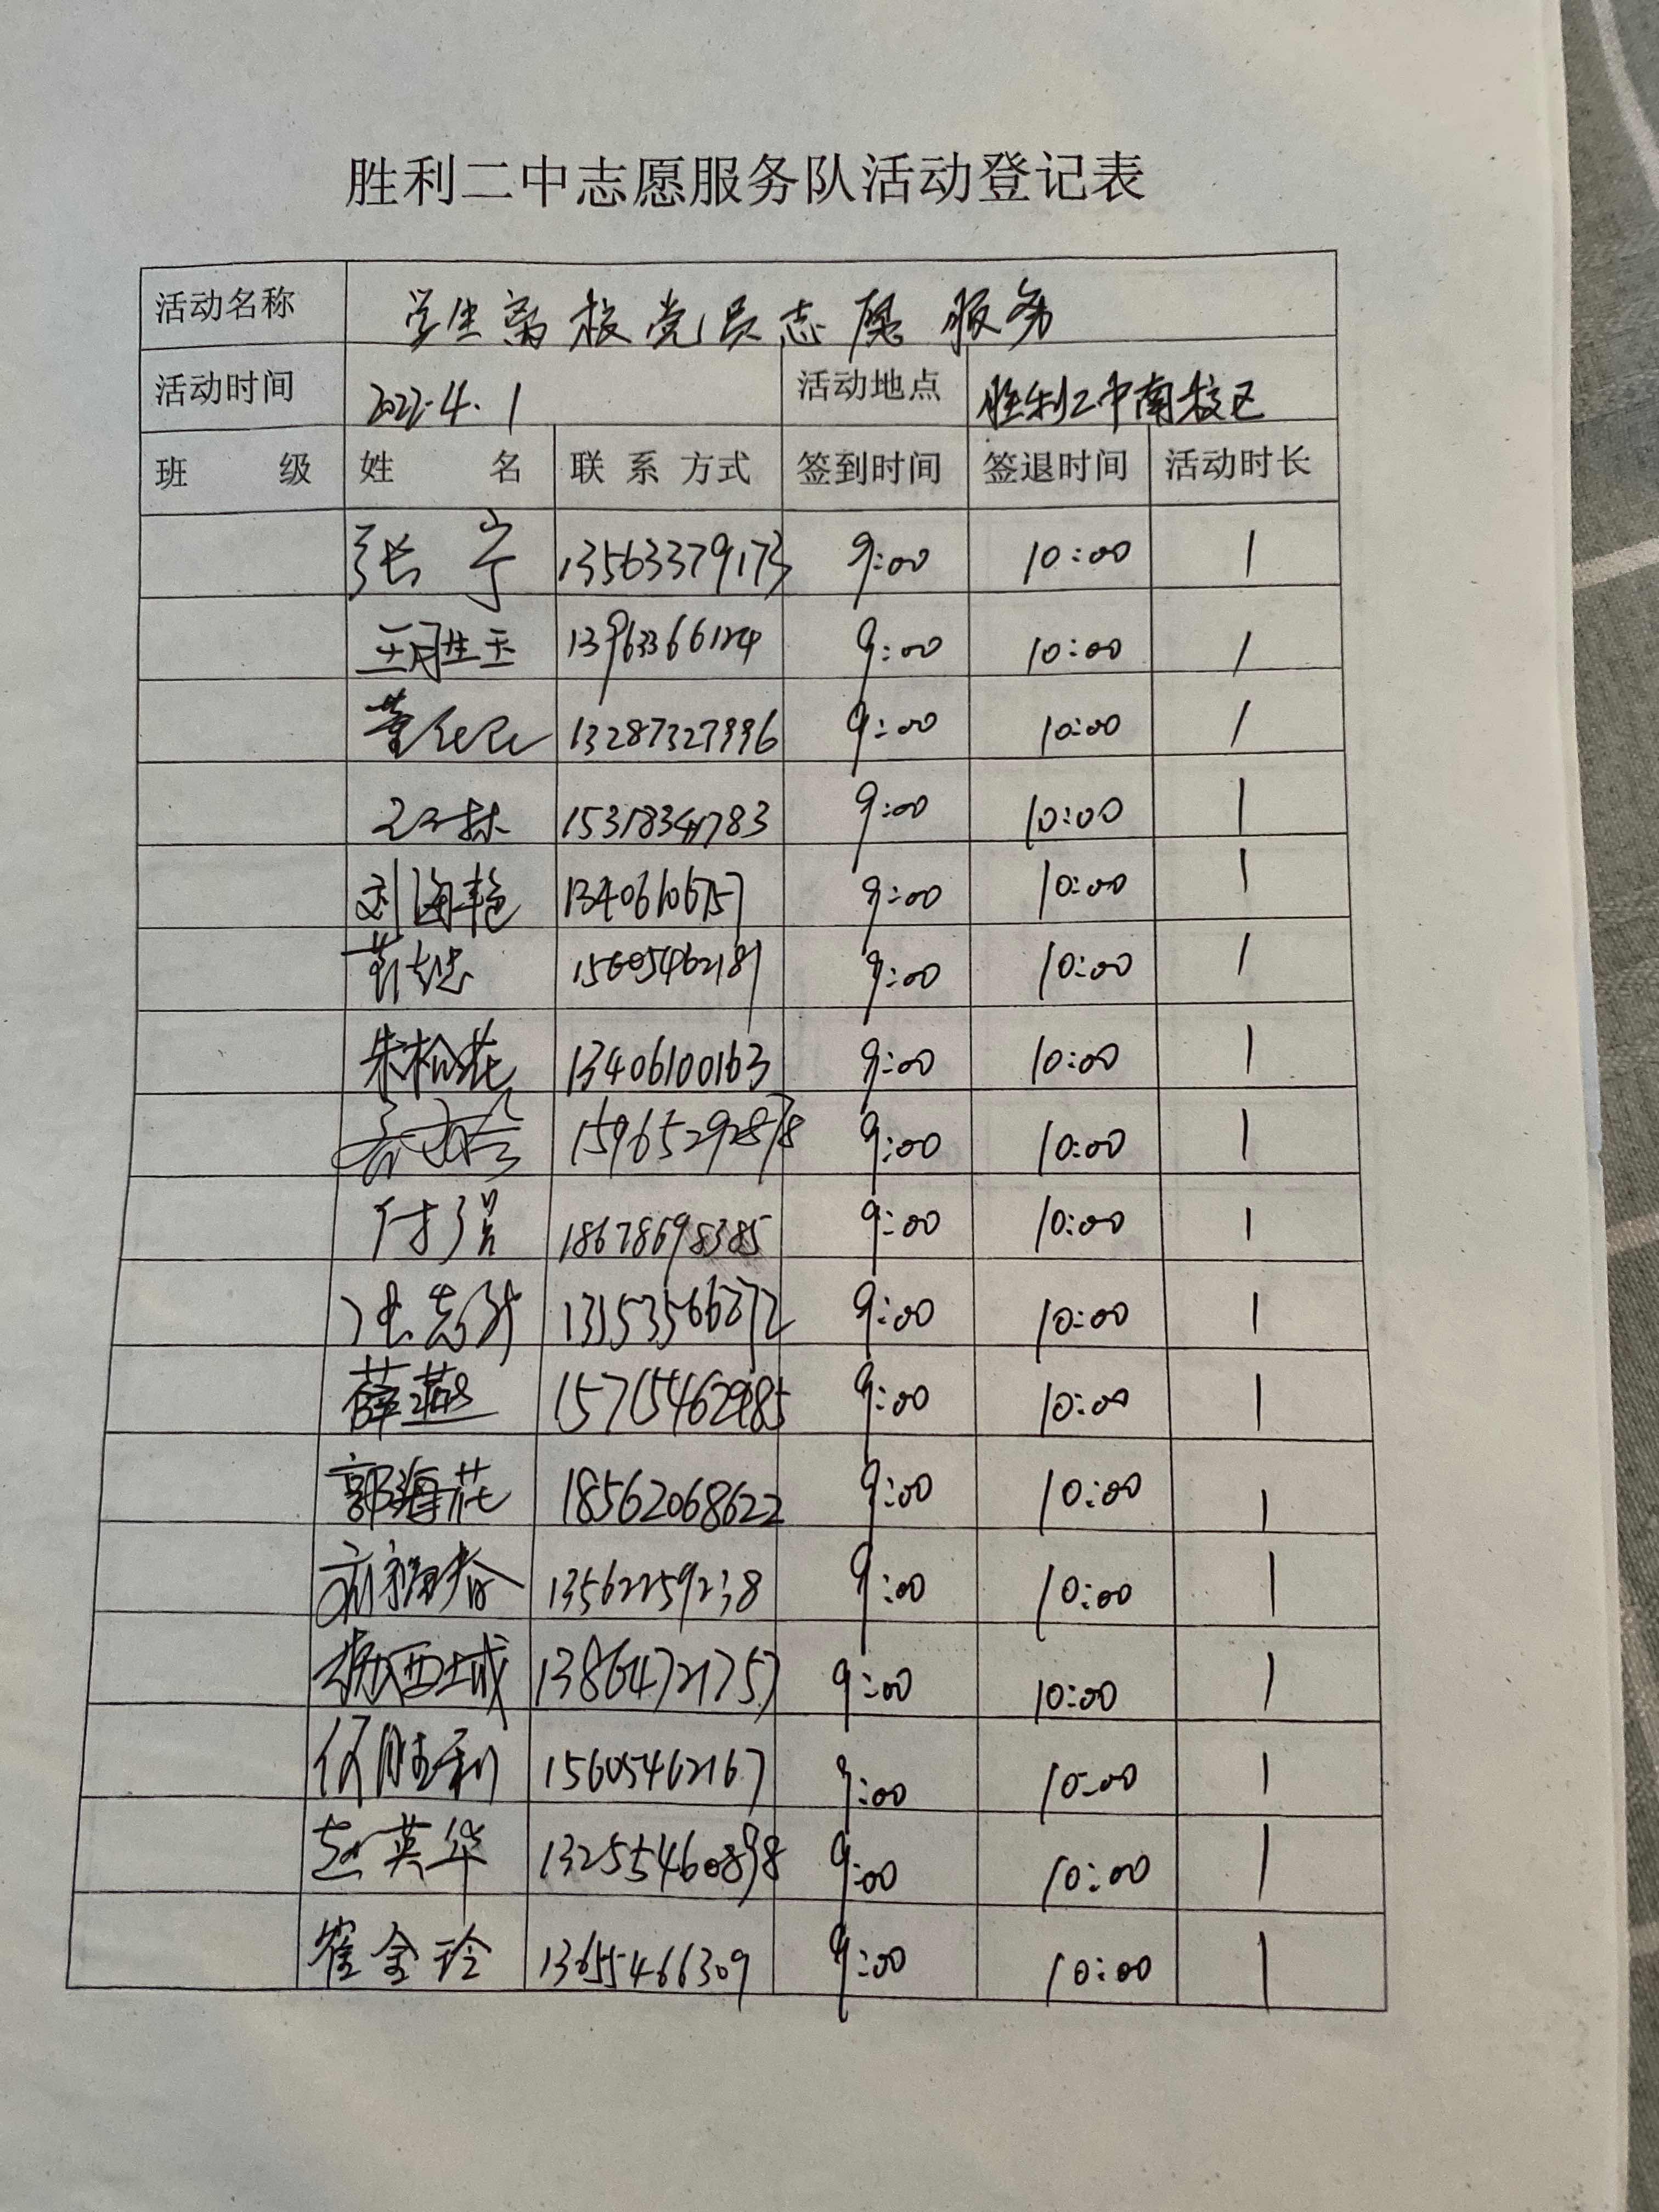 胜利二中志愿服务队活动登记表
活动名称 学生离校党员志愿服务
活动时间 2022.4.1 活动地点 胜利二中南校区
班 级 姓 名 联系方式 签到时间 签退时间 活动时长
张宁 13563379173 9:00 10:00 1
王胜玉 9:00 10:00 1
董 13287327996 9:00 10:00 1
9:00 10:00 1
刘海艳 9:00 10:00 1
15605462181 9:00 10:00 1
朱松花 13406100163 9:00 10:00 1
15965292878 9:00 10:00 1
付强 18678698385 9:00 10:00 1
9:00 10:00 1
薛燕 15715462985 9:00 10:00 1
郭海花 18562068622 9:00 10:00 1
13562259238 9:00 10:00 1
13864721757 9:00 10:00 1
何胜利 15605462167 9:00 10:00 1
赵英华 13255460898 9:00 10:00 1
崔金玲 13655466309 9:00 10:00 1